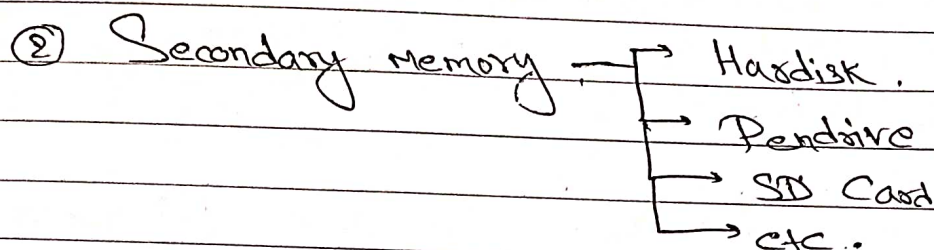 ② Secondary memory → Hardisk.
→ Pendrive
→ SD Card
→ etc.